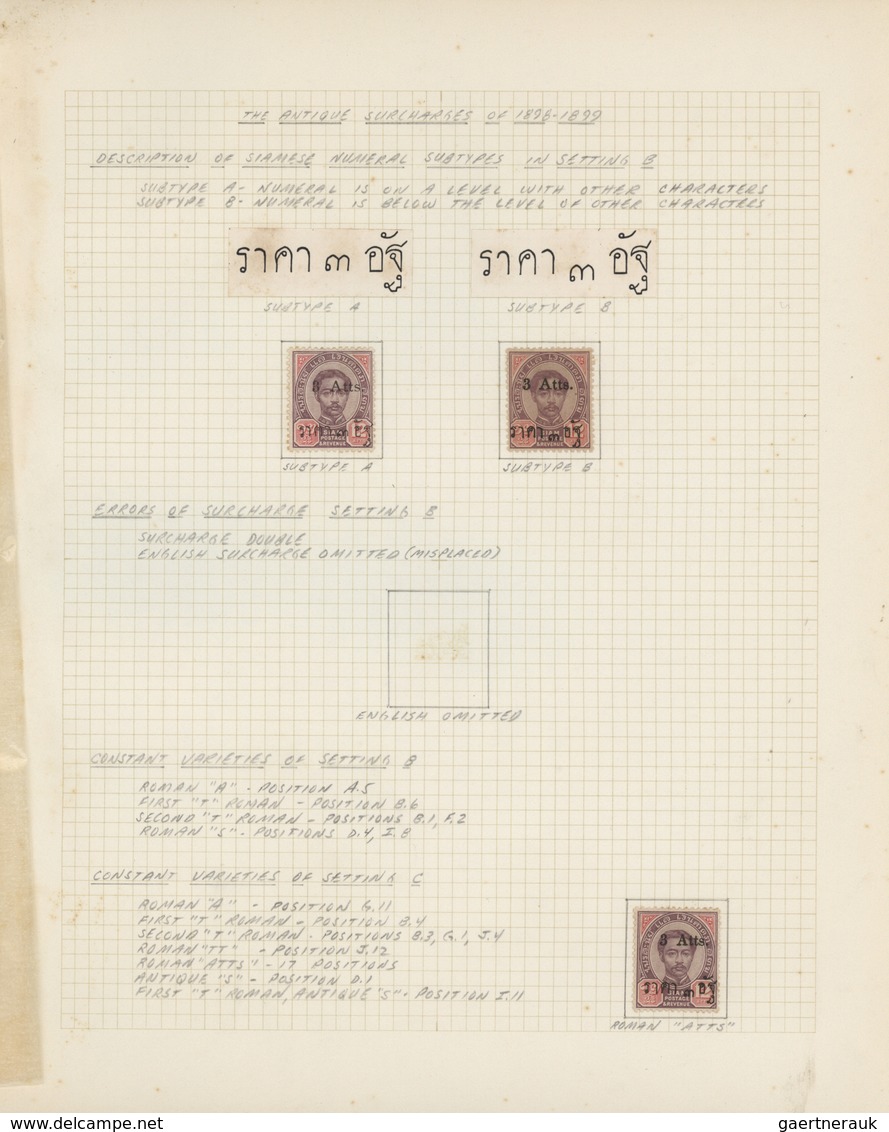 THE ANTIQUE SURCHARGES OF 1898-1899
DESCRIPTION OF SIAMESE NUMERAL SUBTYPES IN SETTING B
SUBTYPE A - NUMERAL IS ON A LEVEL WITH OTHER CHARACTERS
SUBTYPE B - NUMERAL IS BELOW THE LEVEL OF OTHER CHARACTERS
ราคา ๓ อัฐ
ราคา ๓ อัฐ
SUBTYPE A
SUBTYPE B
3 Atts.
ราคา ๓ อัฐ
SIAM
POSTAGE
& REVENUE
3 Atts.
ราคา ๓ อัฐ
SUBTYPE A
SUBTYPE B
ERRORS OF SURCHARGE SETTING B
SURCHARGE DOUBLE
ENGLISH SURCHARGE OMITTED (MISPLACED)
ENGLISH OMITTED
CONSTANT VARIETIES OF SETTING B
ROMAN "A" - POSITION A.5
FIRST "T" ROMAN - POSITION B.6
SECOND "T" ROMAN - POSITIONS B.1, F.2
ROMAN "S" - POSITIONS D.4, I.8
CONSTANT VARIETIES OF SETTING C
ROMAN "A" - POSITION G.11
FIRST "T" ROMAN - POSITION B.4
SECOND "T" ROMAN - POSITIONS B.3, G.1, J.4
ROMAN "TT" - POSITION J.12
ROMAN "ATTS" - 17 POSITIONS
ANTIQUE "S" - POSITION D.1
FIRST "T" ROMAN, ANTIQUE "S" - POSITION I.11
3 Atts.
ราคา ๓ อัฐ
SIAM
POSTAGE
& REVENUE
ROMAN "ATTS"
www.delcampe.net
gaertnerauk